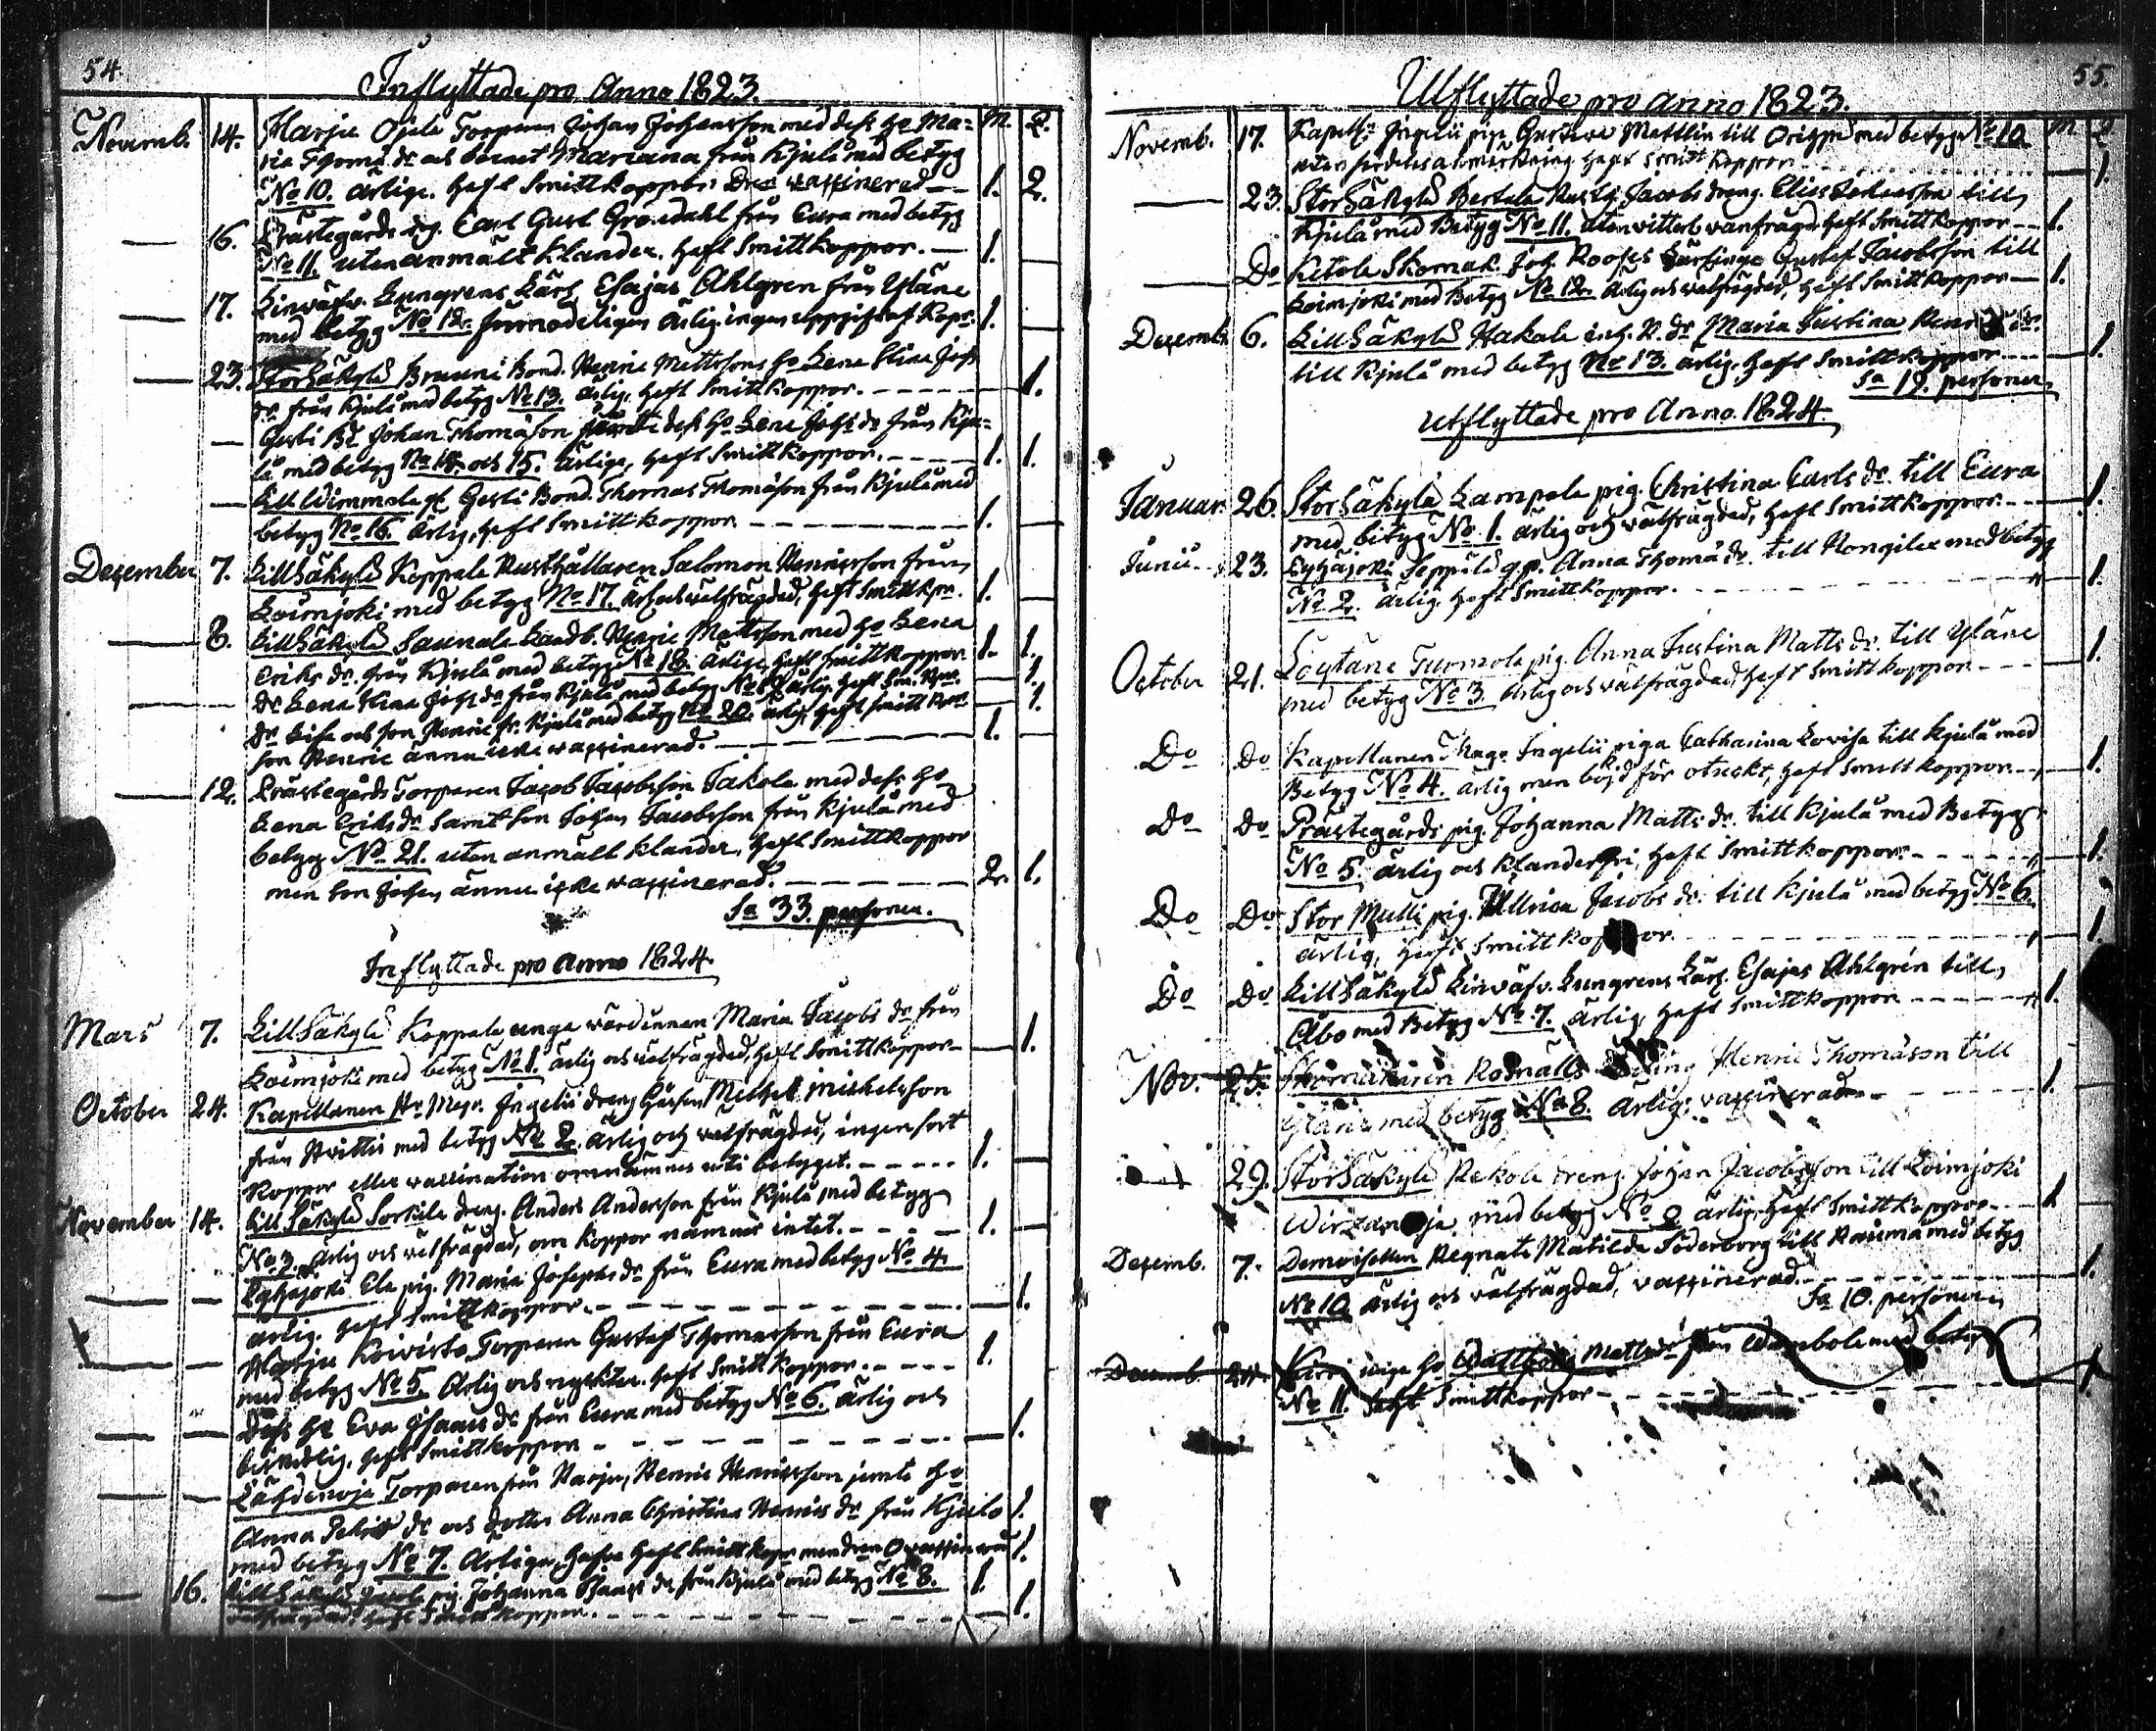 54.
Inflyttade pro Anno 1823.
M. Q.
Novemb. 14. Harju Ojala Torparen Johan Johansson med dess ho Ma=
ria Thomæ dr och barnet Mariana från Kjulå med betyg
No 10. ärlige. haft Smittkoppor vaccinerad 1. 2.
16. Prästegårds dg. Carl Gust. Grönedahl från Eura med betyg
No 11. utan anmält klander. haft Smittkoppor. 1.
17. Linväfv. Lungrens Lärl. Esajas Ahlgren från Yläne
med betyg No 12. förmodeligen ärlig. ingen uppgift af Kopr. 1.
23. StorSäkylä Bruuni Bond. Henric Mattssons ho Lena Stina Johs
dr. från Kjulå med betyg No 13. ärlig, haft Smittkoppor. 1.
Johan Thomason jemte dess ho Lena Johs dr från Kju=
lå med betyg No 14 och 15. ärlige, haft Smittkoppor. 1. 1.
Bond. Thomas Thomason från Kjulå med
betyg No 16. ärlig, haft Smittkoppor 1.
December 7. LillSäkylä Koppala Rusthållaren Salomon Henricsson från
Loimjoki med betyg No 17. ärl. och välfrägdad, haft Smittkpr. 1.
8. LillSäkylä Saunala Landb. Henric Mattsson med ho Lena
Eriks dr. från Kjulå med betyg No 18. ärlige haft smittkoppor 1. 1.
Do Lena Stina Johs dr från Kjulå med betyg No 19 ärlig, haft Sm. Kpr. 1.
Do Lisa och son Henric fr. Kjulå med betyg No 20. ärlig, haft smitt Kpr. 1.
son Henric ännu icke vaccinerad. 1.
12. Prästegårds Torparen Jacob Jacobsson Jakola med dess ho
Lena Eriks dr samt son Johan Jacobsson från Kjulå med
betyg No 21. utan anmält klander, haft Smittkoppor
men son Johan ännu icke vaccinerad. 2. 1.
Sa 33. personer.
Inflyttade pro Anno 1824.
Mars 7. LillSäkylä Koppala unga värdinnan Maria Jacobs dr från
Loimjoki med betyg No 1. ärlig och välfrägdad, haft Smittkoppor 1.
October 24. Kapellanen Hr Magr. Ingelii dreng Michel Michelsson
från Hvittis med betyg No 2. ärlig och välfrägdad, ingen fört
Koppor eller vaccination omnämnes uti betyget. 1.
November 14. LillSäkylä Sorkila dreng. Anders Anderson från Kjulå med betyg
No 3. ärlig och välfrägdad, om koppor nämnes intet. 1.
Pyhäjoki Ela pig. Maria Josephs dr från Eura med betyg No 4.
ärlig. haft smittkoppor. 1.
Harju Koivisto Torparen Gustaf Thomasson från Eura
med betyg No 5. ärlig och nyckter. haft Smittkoppor. 1.
Dess ho Eva Isaacs dr från Eura med betyg No 6. ärlig och
beskedlig, haft Smittkoppor 1.
Lähdenoja Torparen från Harju, Henric Henricsson jemte ho
Anna dr och dotter Anna Christina Henrics dr från Kjulo 1.
med betyg No 7. ärliga, haft Smittkoppor men dren ovaccinerad 1.
16. LillSäkylä pig Johanna Isaacs dr från Kjulå med betyg No 8. 1.
välfrägdad, haft Smittkoppor. 1.
55.
Utflyttade pro anno 1823.
M. Q.
Novemb. 17. Kapells. Ingelii piga Gustava Mattlin till Oripä med betyg No 10.
utan särdeles anmärkning. haft Smittkoppor 1.
23. StorSäkylä Bertala Rusth. Jacobs dreng. Elias till
Kjulå med Betyg No 11. utan vitterl. vanfrägd haft Smittkoppor 1.
Do Ketola Skomak. Joh. Rooses Lärlinge Gustaf Jacobsson till
Loimjoki med Betyg No 12. ärlig och välfrägdad, haft Smittkoppor 1.
Decemb. 6. LillSäkylä Hakala inh. P. dr Maria Justina Henrics dr.
till Kjulå med betyg No 13. ärlig. haft Smittkoppor. 1.
Sa 19. personer.
Utflyttade pro Anno 1824.
Januar. 26. StorSäkylä Lampola pig. Christina Carls dr. till Eura
med betyg No 1. ärlig och välfrägdad, haft Smittkoppor. 1.
Junii 23. Pyhäjoki Seppälä gp. Anna Thomæ dr. till Hongilax med betyg
No 2. ärlig haft Smittkoppor. 1.
October 21. Löytäne Tuomola pig. Anna Justina Matts dr. till Yläne
med betyg No 3. ärlig och välfrägdad haft Smittkoppor 1.
Do Do Kapellanen Magr Ingelii piga Catharina Lovisa till Kjulå med
Betyg No 4. ärlig men böjd för otuckt, haft Smittkoppor. 1.
Do Do Prästegårds pig. Johanna Matts dr. till Kjulå med Betyg
No 5. ärlig och klanderfri, haft Smittkoppor. 1.
Do Do Stor Mulli pig. Ullrica Jacobs dr. till Kjulå med betyg No 6.
ärlig, haft Smittkoppor. 1.
Do Do LillSäkylä Linväfv. Lungrens Lärl. Esajas Ahlgrén till
Åbo med Betyg No 7. ärlig, haft Smittkoppor 1.
Nov. 25. Skomakaren Henric Thomason till
Yläne med betyg No 8. ärlig, vaccinerad. 1.
29. StorSäkylä Pekola dreng. Johan Jacobsson till Loimjoki
med betyg No 9 ärlig, haft Smittkoppor 1.
Decemb. 7. Demoiselten Regnata Matilda Söderborg till Raumå med betyg
No 10. ärlig och välfrägdad, vaccinerad. 1.
Sa 10. personer
Decemb. 24. unga ho Mattsdr från med betyg
No 11. haft Smittkoppor 1.